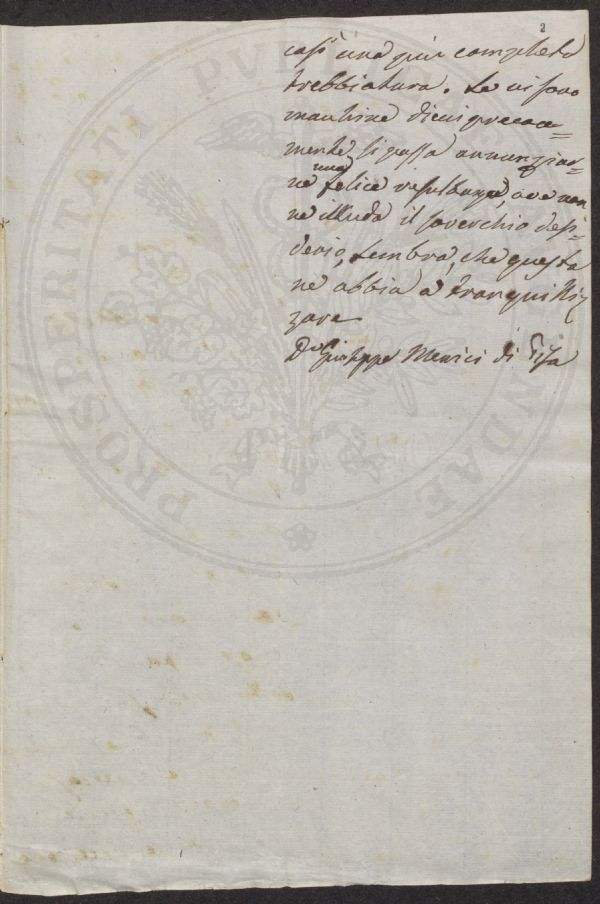 2
casi una più completa
trebbiatura. Se vi sono
machine di cui precoce=
mente si possa annunziar=
ne una felice resultanza, ove non
ne illuda il soverchio desi=
derio, sembra, che questa
ne abbia a tranquilliz
zare
D. Giuseppe Menici di Pisa
PROSPERITATI PVBLICAE AVGENDAE